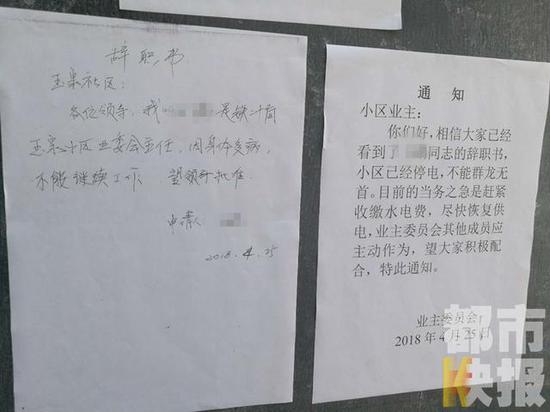 辞职书
玉泉社区:
各位领导,我 是铁二十局
玉泉小区业委会主任,因身体多病,
不能继续工作 望领导批准
申请人
2018.4.25
通 知
小区业主:
你们好,相信大家已经
看到了 同志的辞职书,
小区已经停电,不能群龙无
首。目前的当务之急是赶紧
收缴水电费,尽快恢复供
电,业主委员会其他成员应
主动作为,望大家积极配
合,特此通知。
业主委员会
2018年4月25日
都市
快报